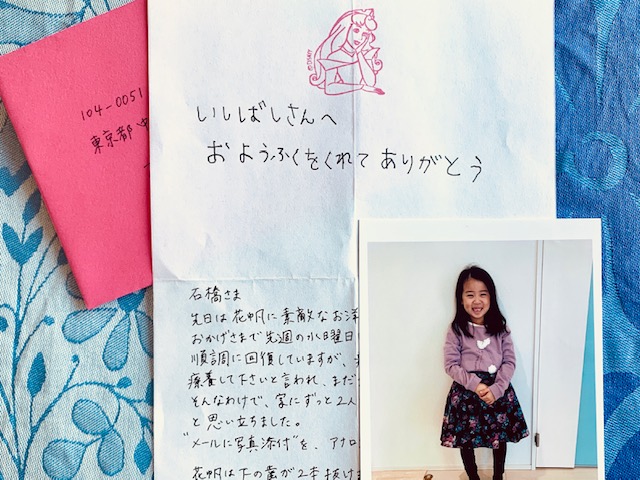 104-0051
東京都中
©DISNEY
いしばしさんへ
おようふくをくれてありがとう
石橋さま
先日は花帆に素敵なお洋
おかげさまで先週の水曜日
順調に回復していますが、
療養して下さいと言われ、まだ
そんなわけで、家にずっと2人
と思い立ちました。
"メールに写真添付"を、アナロ
花帆は下の歯が2本抜け